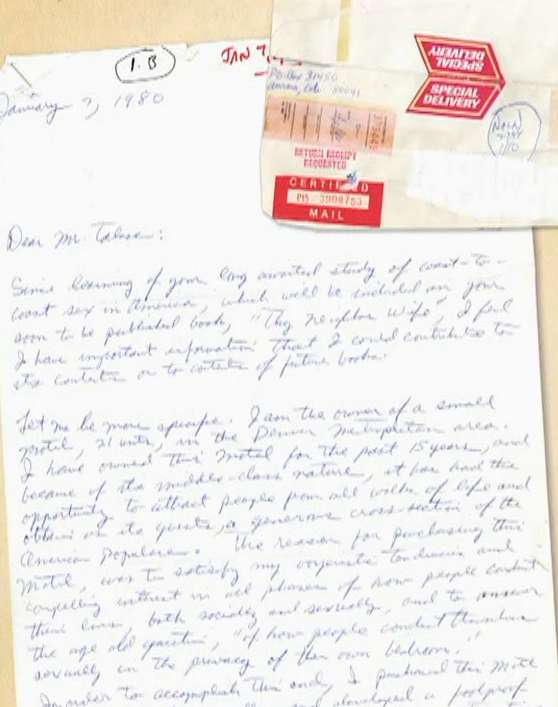 1. B
JAN 7
January 7, 1980
PO Box 31450
Aurora, Colo. 80041
SPECIAL DELIVERY
SPECIAL DELIVERY
RETURN RECEIPT
REQUESTED
CERTIFIED
P15 3008753
MAIL
Dear Mr. Talese:
Since learning of your long awaited study of coast-to-
coast sex in America, which will be included in your
soon to be published book, "Thy Neighbor Wife," I feel
I have important information that I could contribute to
its contents or to contents of future books.
Let me be more specific. I am the owner of a small
motel, 21 units, in the Denver metropolitan area.
I have owned this motel for the past 15 years, and
because of its middle-class nature, it has had the
opportunity to attract people from all walks of life and
obtain as its guests, a generous cross-section of the
American populace. The reason for purchasing this
motel, was to satisfy my voyeuristic tendencies and
compelling interest in all phases of how people conduct
their lives, both socially and sexually, and to answer
the age old question, "of how people conduct themselves
sexually in the privacy of their own bedroom."
In order to accomplish this end, I purchased this motel
and developed a foolproof